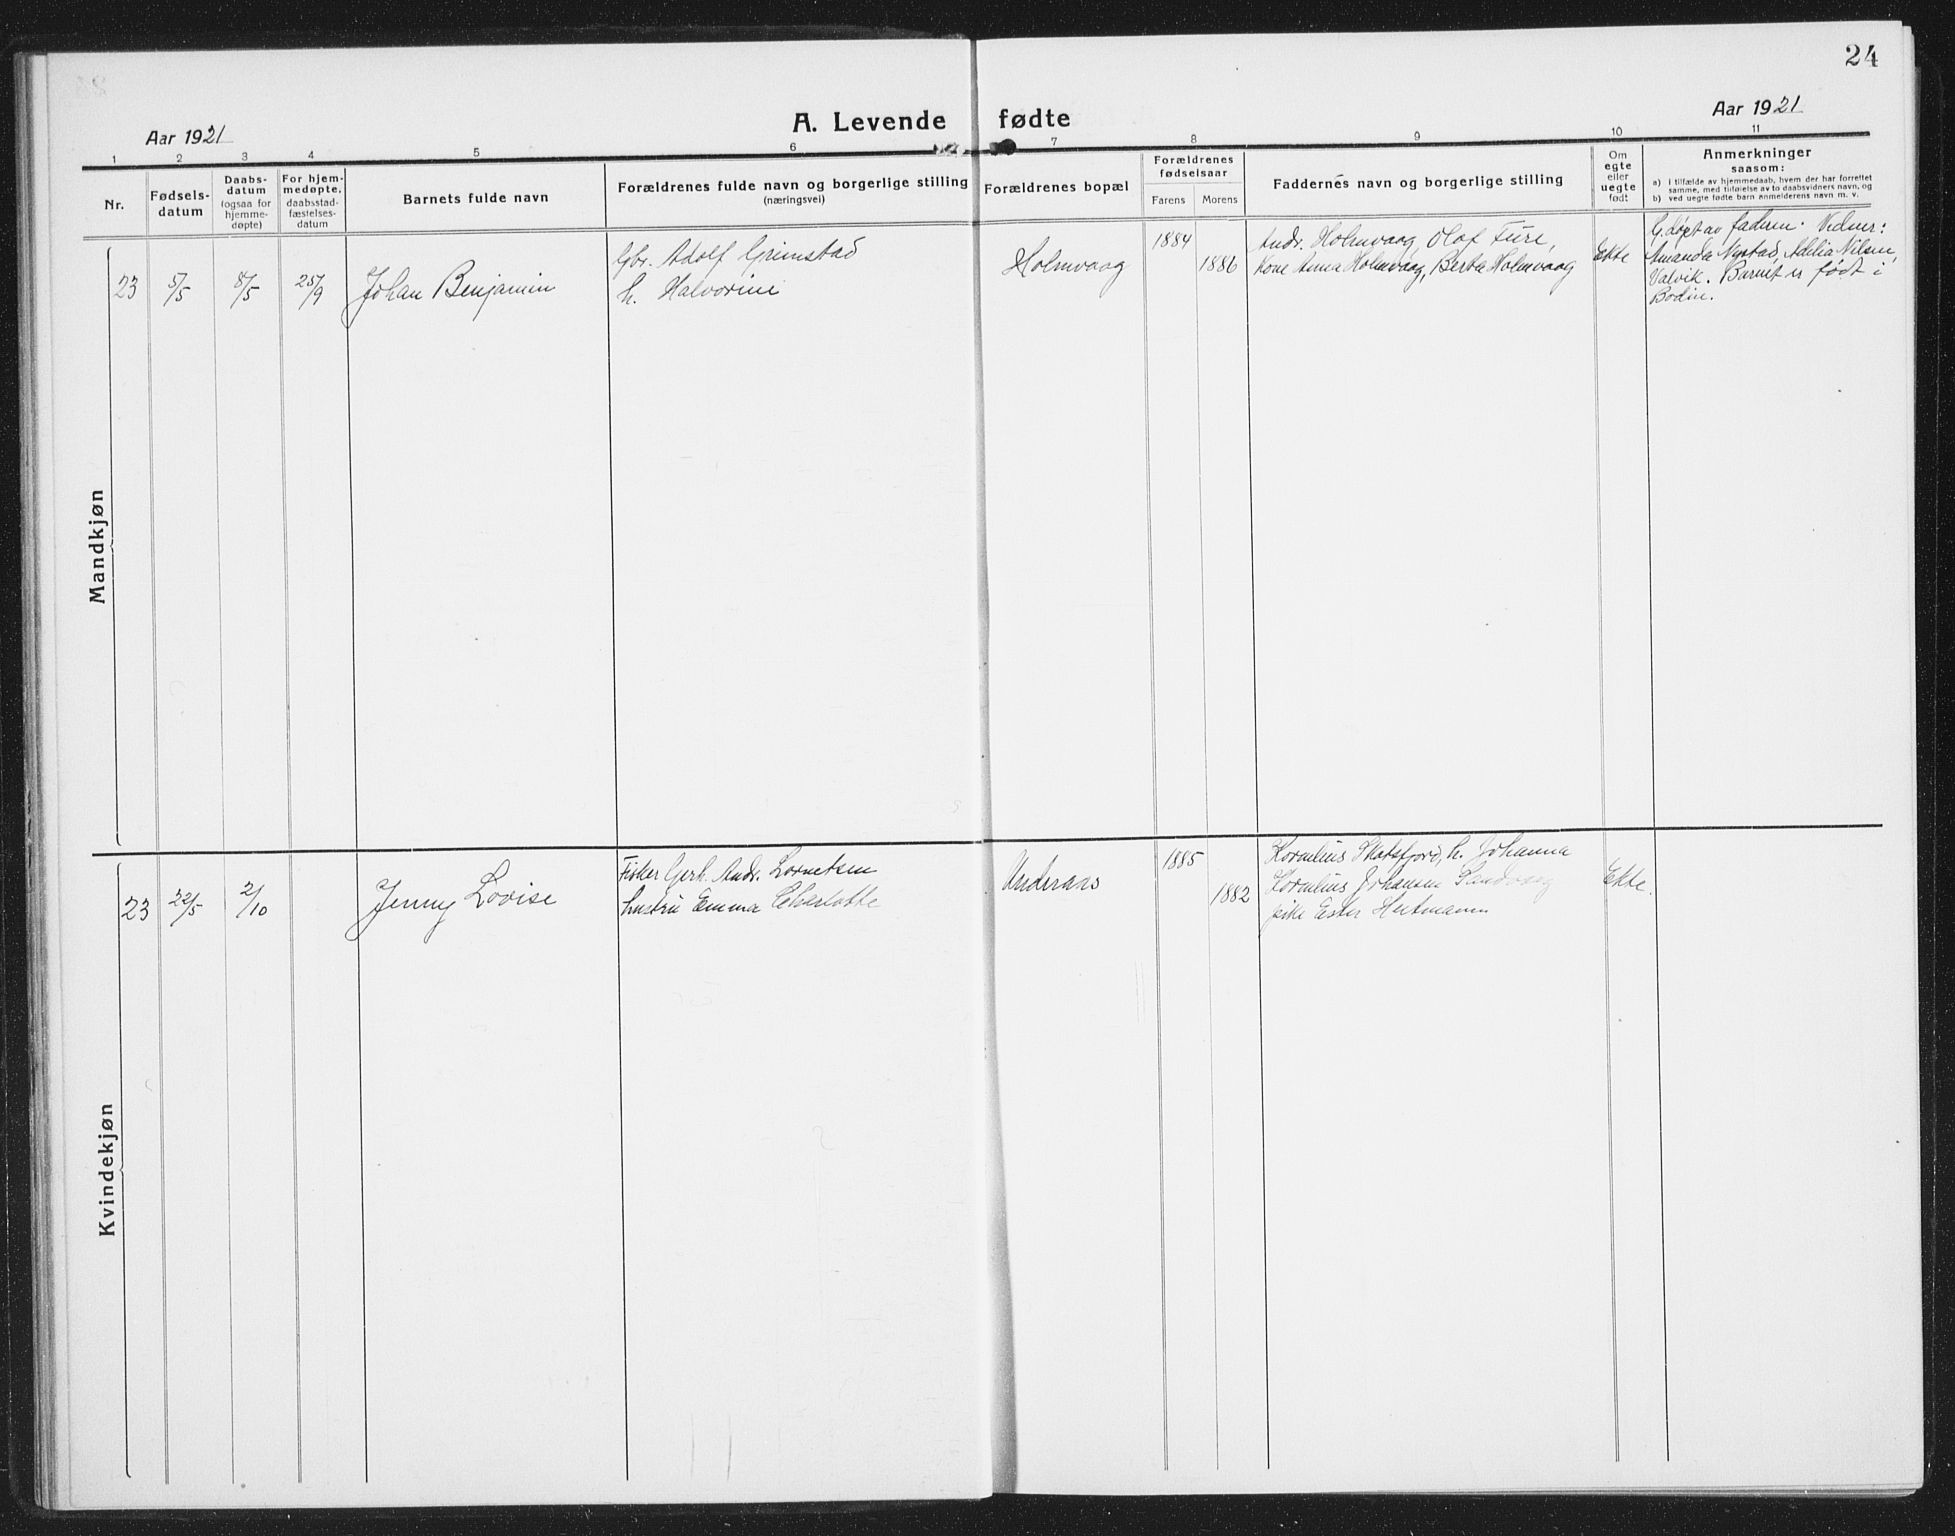 24
Aar 1921
A. Levende fødte
Aar 1921
1 2 3 4 5 6 7 8 9 10 11
Nr.
Fødsels-
datum
Daabs-
datum
(ogsaa for
hjemme-
døpte)
For hjem-
medøpte,
daabsstad-
fæstelses-
datum
Barnets fulde navn
Forældrenes fulde navn og borgerlige stilling
(næringsvei)
Forældrenes bopæl
Forældrenes
fødselsaar
Farens Morens
Faddernes navn og borgerlige stilling
Om
egte
eller
uegte
født
Anmerkninger
saasom:
a) i tilfælde av hjemmedaab, hvem der har forrettet
samme, med tilføielse av to daabsvidners navn, og
b) ved uegte fødte barn anmelderens navn m. v.
Mandkjøn
23 5/5 8/5 25/9 Johan Benjamin
Gbr. Adolf Grimstad
h. Halvorine
Holmvaag
1884
1886
Andr. Holmvaag, Olaf Fure,
Kone Anna Holmvaag, Berta Holmvaag
Ekte
G. døpt av faderen. Vidner:
Amanda Nystad, Adelia Nilsen,
Valvik. Barnet er født i
Bodin.
Kvindekjøn
23 22/5 2/10 Jenny Lovise
Fisker Gerh. Andr. Lorentsen
hustru Emma Charlotte
Underaas
1885
1882
Kornelius Skotsfjord, h. Johanna
Kornelius Johansen Sandvaag
pike Ester Hertmann
Ekte.